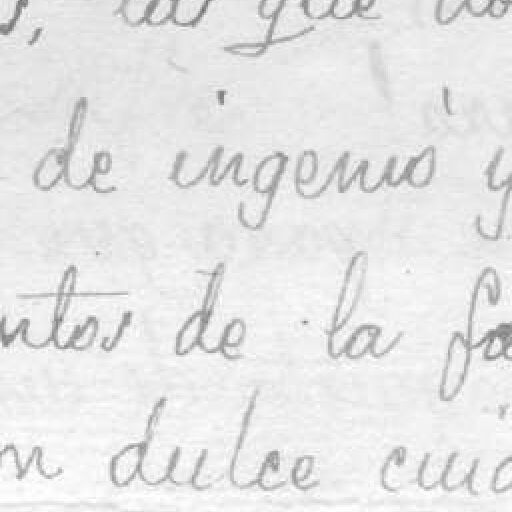 las que
de ingenio y
ntos de la fa
n dulce cuid